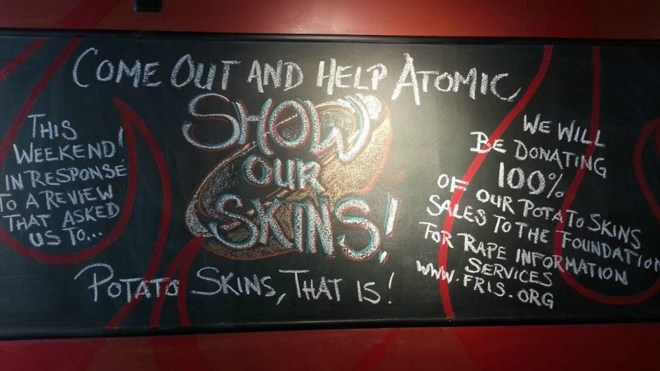 COME OUT AND HELP ATOMIC
THIS
WEEKEND!
IN RESPONSE
TO A REVIEW
THAT ASKED
US TO...
SHOW
OUR
SKINS!
POTATO SKINS, THAT IS!
WE WILL
BE DONATING
100%
OF OUR POTATO SKINS
SALES TO THE FOUNDATION
FOR RAPE INFORMATION
SERVICES
WWW.FRIS.ORG